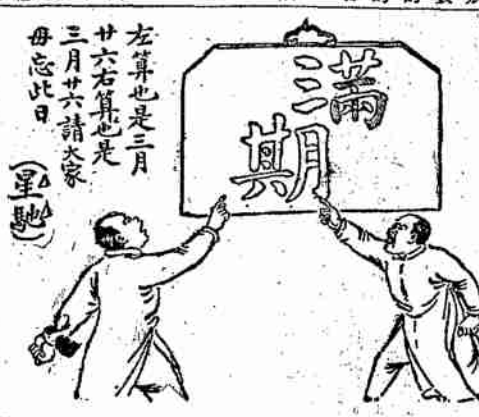 滿期
左算也是三月
廿六右算也是
三月廿六請大家
毋忘此日
(星馳)